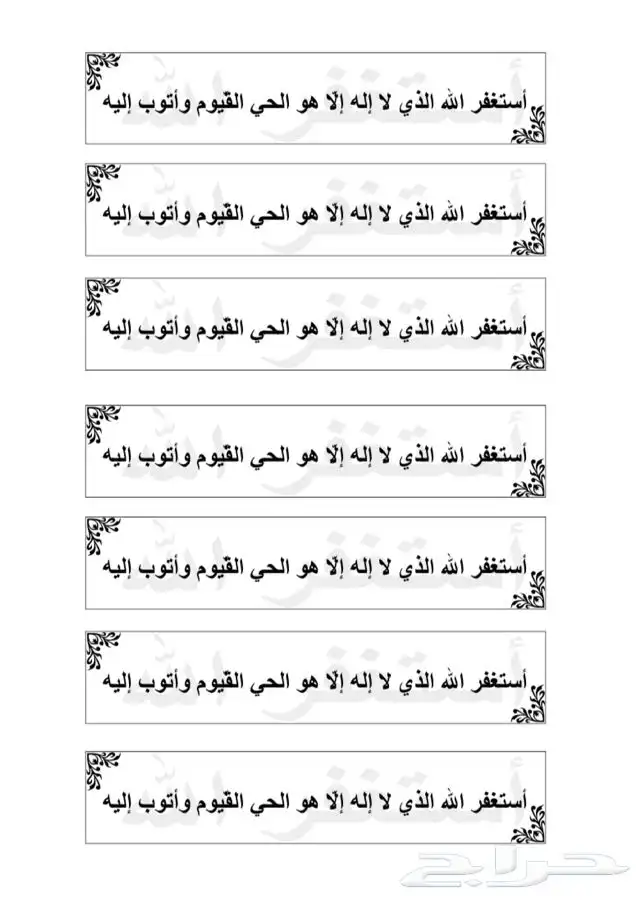 أستغفر الله
أستغفر الله الذي لا إله إلّا هو الحي القيّوم وأتوب إليه
أستغفر الله
أستغفر الله الذي لا إله إلّا هو الحي القيّوم وأتوب إليه
أستغفر الله
أستغفر الله الذي لا إله إلّا هو الحي القيّوم وأتوب إليه
أستغفر الله
أستغفر الله الذي لا إله إلّا هو الحي القيّوم وأتوب إليه
أستغفر الله
أستغفر الله الذي لا إله إلّا هو الحي القيّوم وأتوب إليه
أستغفر الله
أستغفر الله الذي لا إله إلّا هو الحي القيّوم وأتوب إليه
أستغفر الله
أستغفر الله الذي لا إله إلّا هو الحي القيّوم وأتوب إليه
حراج